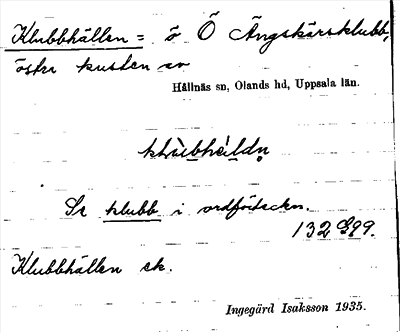 Klubbhällen = ö Ö Ängskärsklubb,
östra kusten av
Hållnäs sn, Olands hd, Uppsala län.
Se klubb i ordförteckn.
132 S. 99.
Klubbhällen ek.
Ingegärd Isaksson 1935.